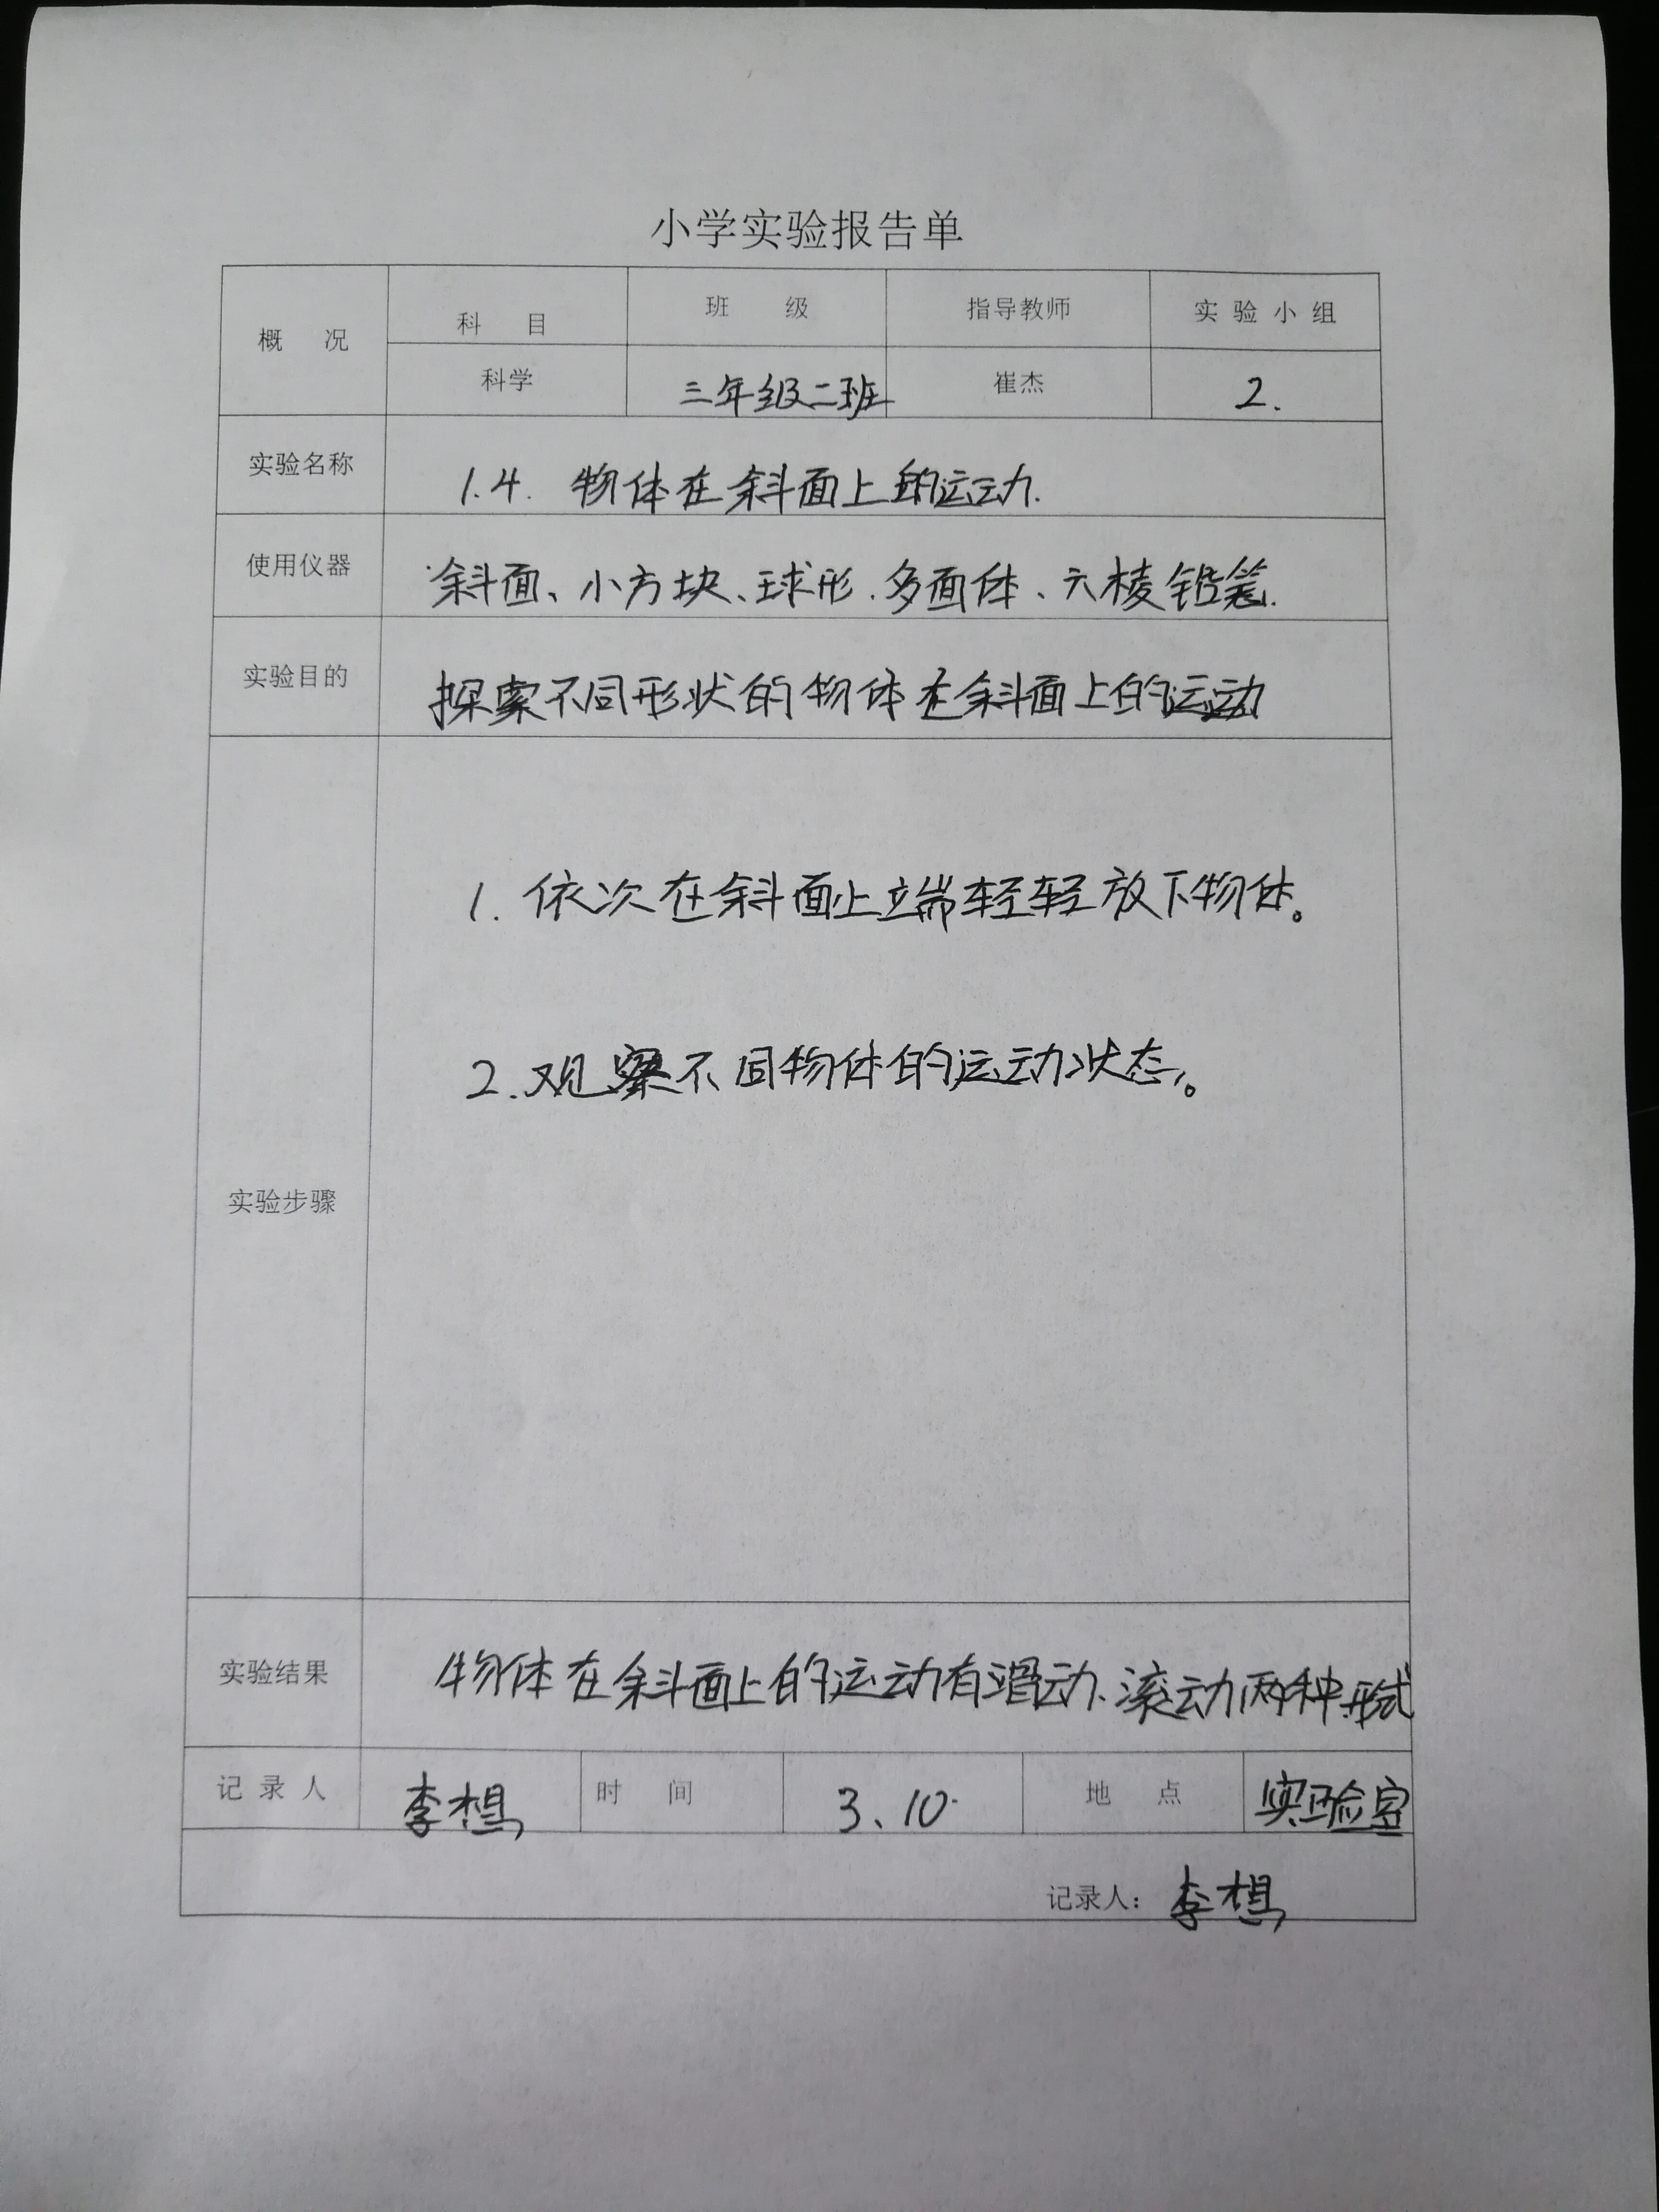 小学实验报告单
概况 科目 班级 指导教师 实验小组
科学 三年级二班 崔杰 2.
实验名称 1.4. 物体在斜面上的运动.
使用仪器 斜面、小方块、球形、多面体、六棱铅笔.
实验目的 探索不同形状的物体在斜面上的运动
实验步骤
1. 依次在斜面上端轻轻放下物体。
2. 观察不同物体的运动状态。
实验结果 物体在斜面上的运动有滑动、滚动两种形式
记录人 李想 时间 3、10. 地点 实验室
记录人：李想